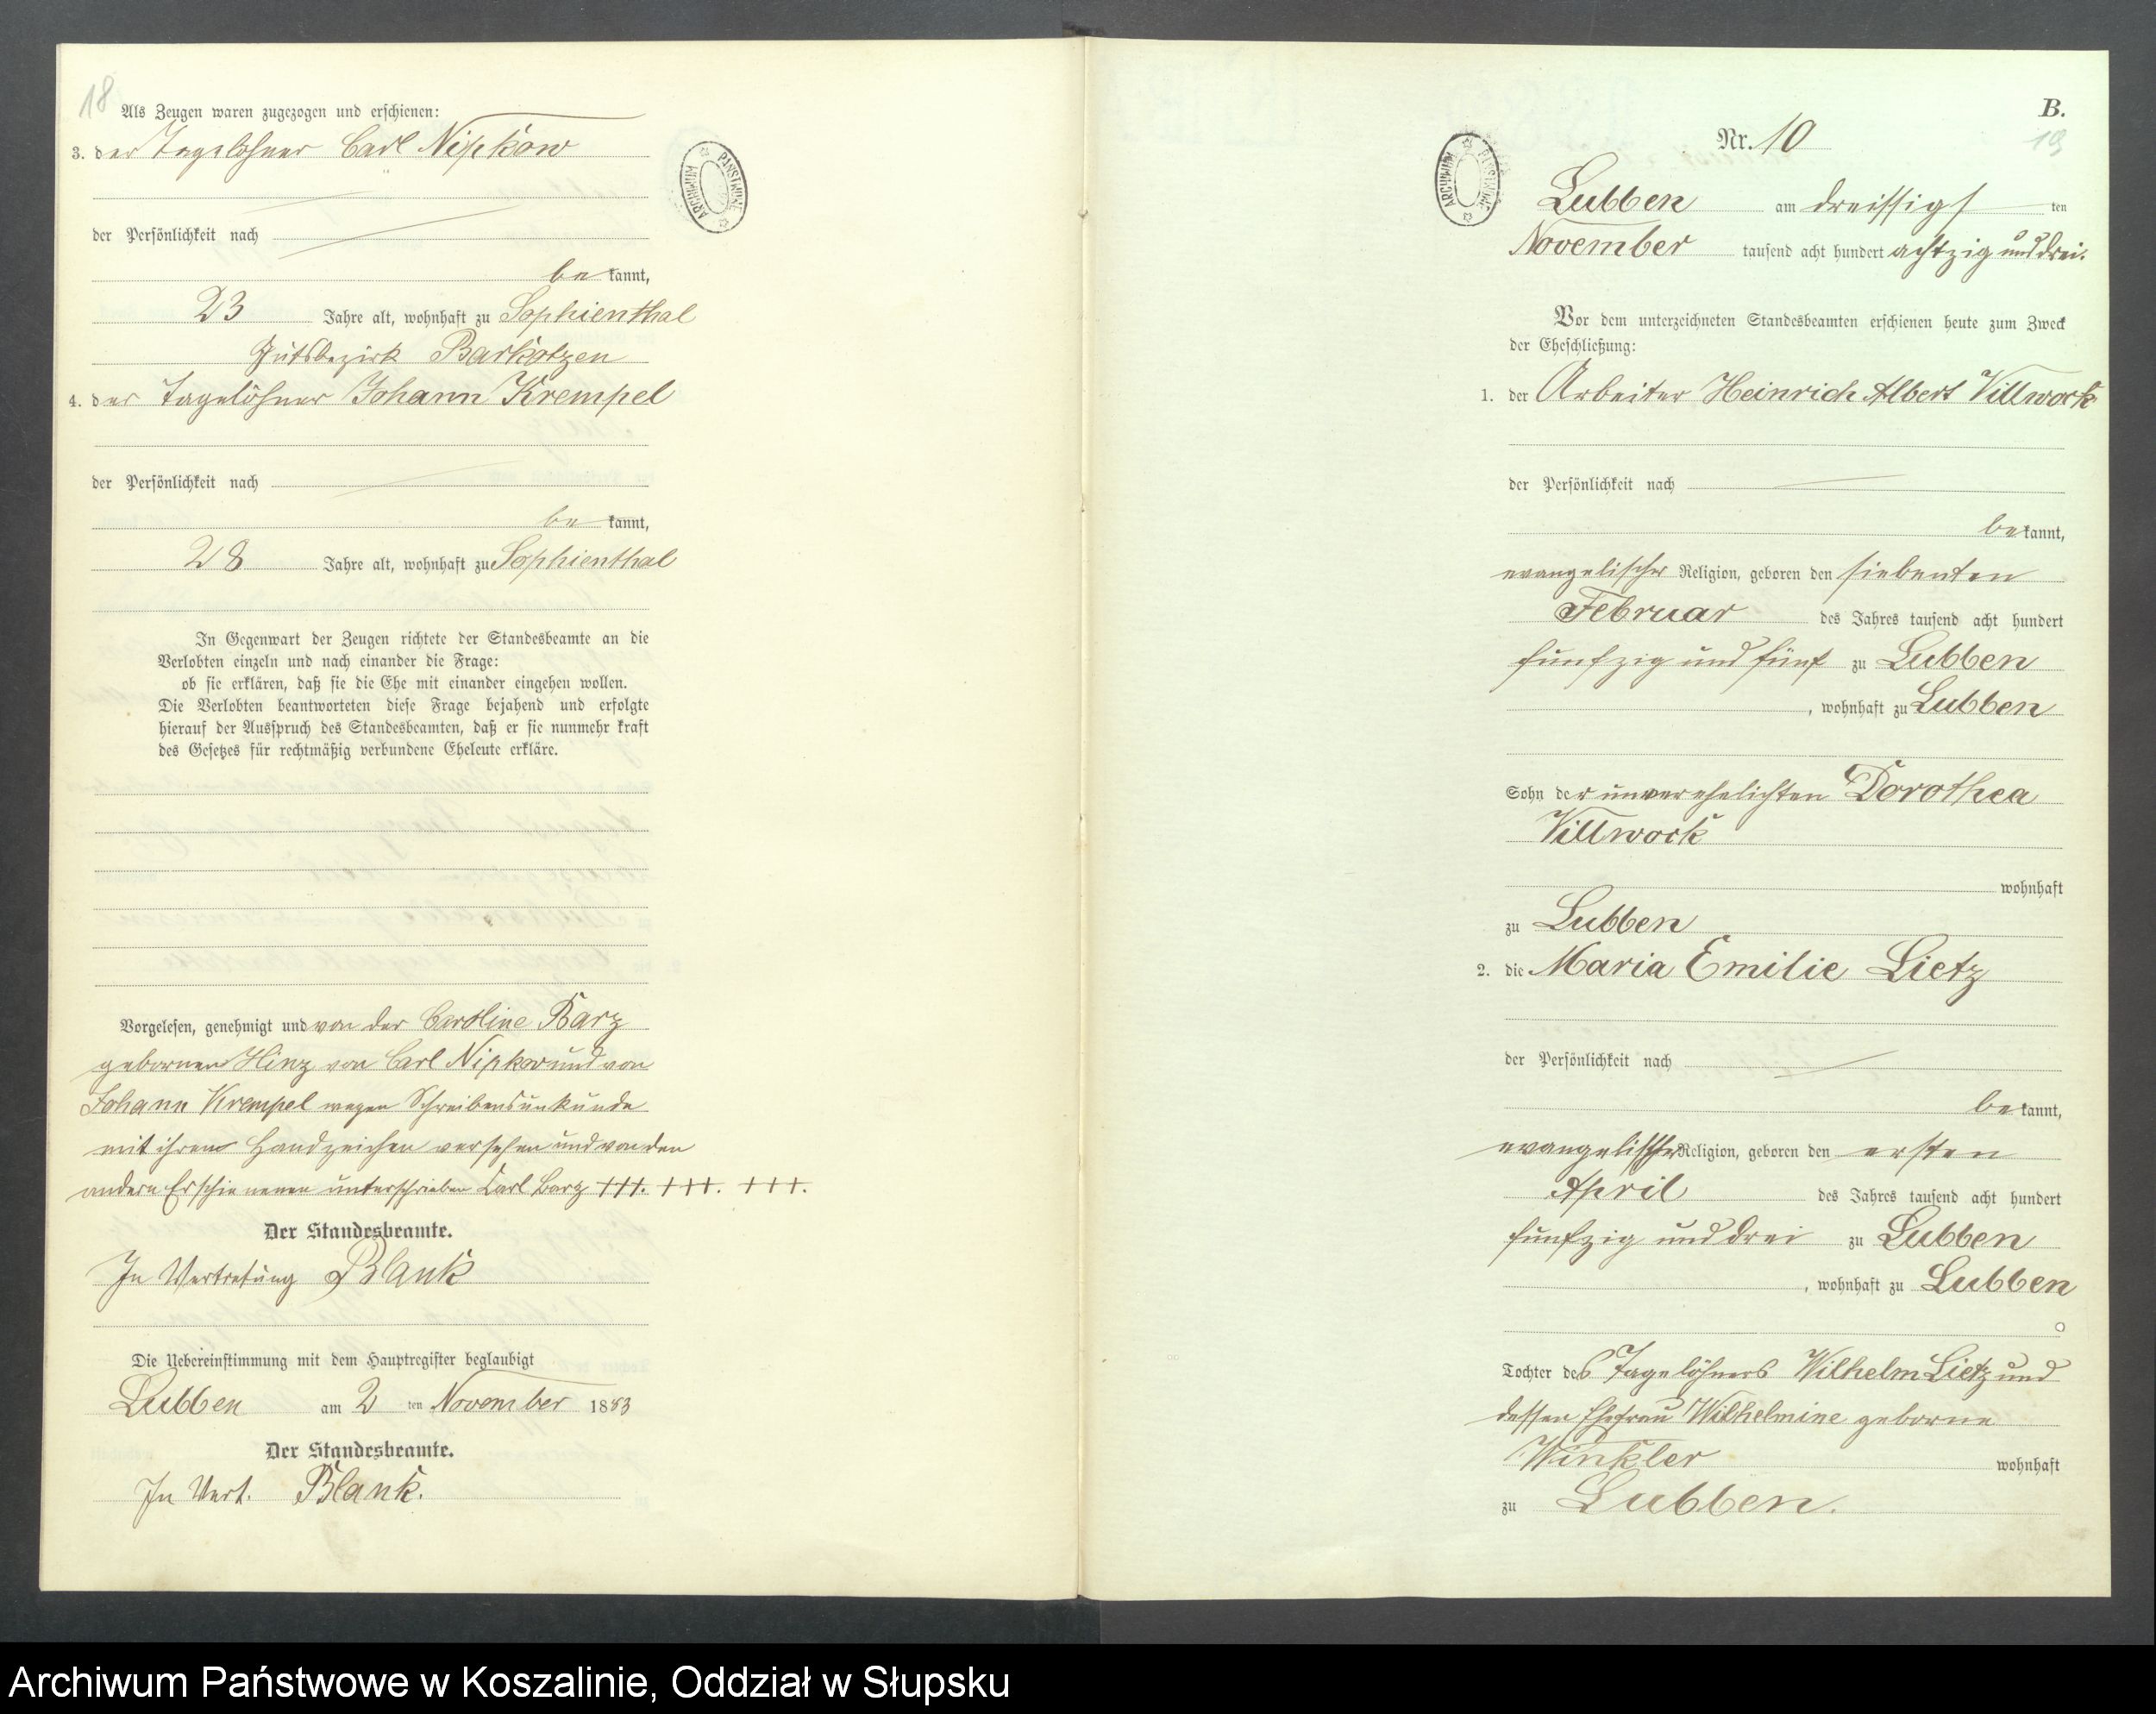 18
Als Zeugen waren zugezogen und erschienen:
3. der Tagelöhner Carl Nipkow
der Persönlichkeit nach
be kannt,
23 Jahre alt, wohnhaft zu Sophienthal
Gutsbezirk Barkotzen
4. der Tagelöhner Johann Krempel
der Persönlichkeit nach
be kannt,
28 Jahre alt, wohnhaft zu Sophienthal
In Gegenwart der Zeugen richtete der Standesbeamte an die
Verlobten einzeln und nach einander die Frage:
ob sie erklären, daß sie die Ehe mit einander eingehen wollen.
Die Verlobten beantworteten diese Frage bejahend und erfolgte
hierauf der Ausspruch des Standesbeamten, daß er sie nunmehr kraft
des Gesetzes für rechtmäßig verbundene Eheleute erkläre.
Vorgelesen, genehmigt und von der Caroline Barz
gebornen Hinz von Carl Nipkow und von
Johann Krempel wegen Schreibensunkunde
mit ihrem Handzeichen versehen und von den
andern Erschienenen unterschrieben Carl Barz +++. +++. +++.
Der Standesbeamte.
In Vertretung Blank
Die Uebereinstimmung mit dem Hauptregister beglaubigt
Lubben am 2 ten November 1883
Der Standesbeamte.
In Vert. Blank.
ARCHIWUM PAŃSTWOWE
B.
19
Nr. 10
ARCHIWUM PAŃSTWOWE
Lubben am dreissigsten
November tausend acht hundert achtzig und drei.
Vor dem unterzeichneten Standesbeamten erschienen heute zum Zweck
der Eheschließung:
1. der Arbeiter Heinrich Albert Villwock
der Persönlichkeit nach
be kannt,
evangelischer Religion, geboren den siebenten
Februar des Jahres tausend acht hundert
funfzig und fünf zu Lubben
, wohnhaft zu Lubben
Sohn der unverehelichten Dorothea
Villwock
wohnhaft
zu Lubben
2. die Maria Emilie Lietz
der Persönlichkeit nach
be kannt,
evangelischer Religion, geboren den ersten
April des Jahres tausend acht hundert
funfzig und drei zu Lubben
, wohnhaft zu Lubben
Tochter des Tagelöhners Wilhelm Lietz und
dessen Ehefrau Wilhelmine geborne
Winkler wohnhaft
zu Lubben.
Archiwum Państwowe w Koszalinie, Oddział w Słupsku